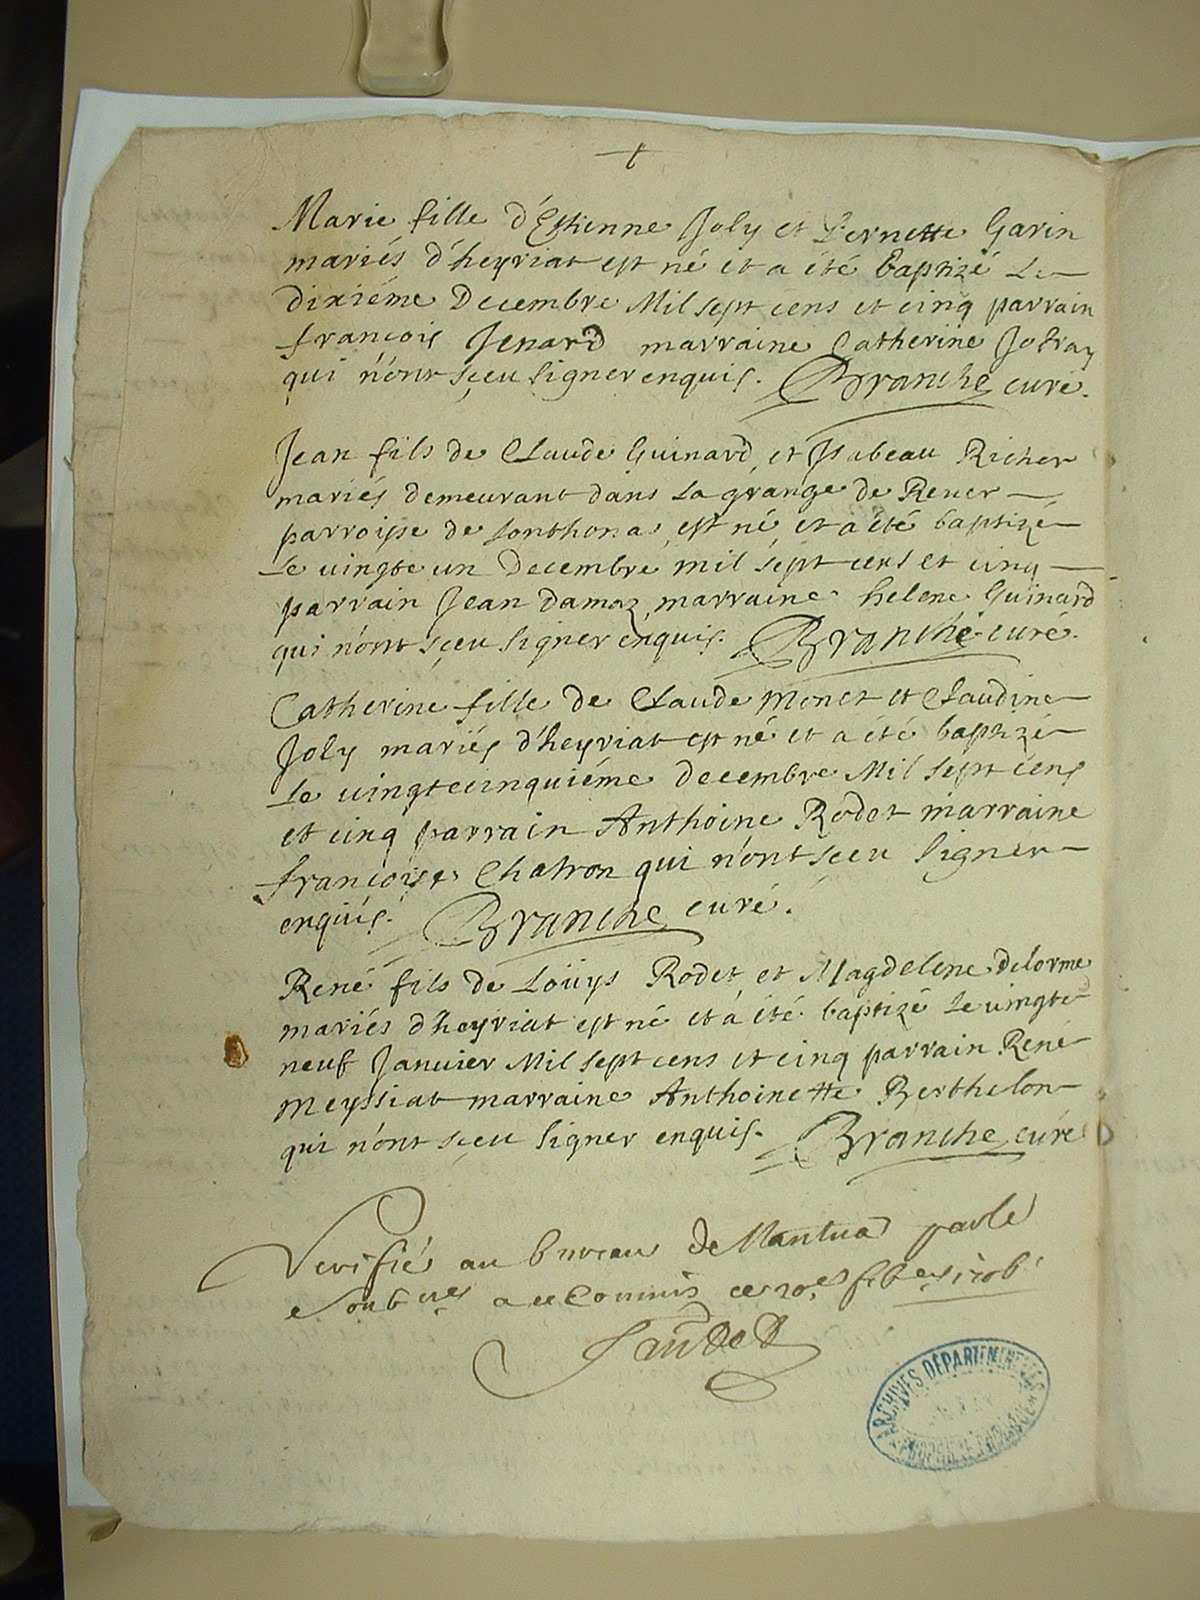 Marie fille d'Estienne Joly et Pernette Garin
mariés d'heyriat est né et a été baptizé Le
dixiéme Decembre Mil sept cens et cinq parrain
françois Jenard marraine Catherine
qui n'ont sçeu signer enquis. Branche curé.
Jean fils de Claude Guinard, et Isabeau Richer
mariés demeurant dans La grange de
parroisse de Sonthona, est né et a été baptizé
Le vingte un Decembre mil sept cens et cinq
parrain Jean Damaz marraine helene Guinard
qui n'ont sçeu signer enquis. Branche curé.
Catherine fille de Claude Monet et Claudine
Joly mariés d'heyriat est né et a été baptizé
Le vingtecinquiéme decembre Mil sept cens
et cinq parrain Anthoine Rodet marraine
françoise Chatron qui n'ont sçeu signer
enquis. Branche curé.
René fils de Loüys Rodet et Magdelene delorme
mariés d'heyriat est né et a été baptizé Le vingte
neuf Janvier Mil sept cens et cinq parrain René
Meyssiat marraine Anthoinette Berthelon
qui n'ont sçeu signer enquis. Branche curé
Verifié au bureau de Nantua par le
commis ce
ARCHIVES DÉPARTEMENTALES